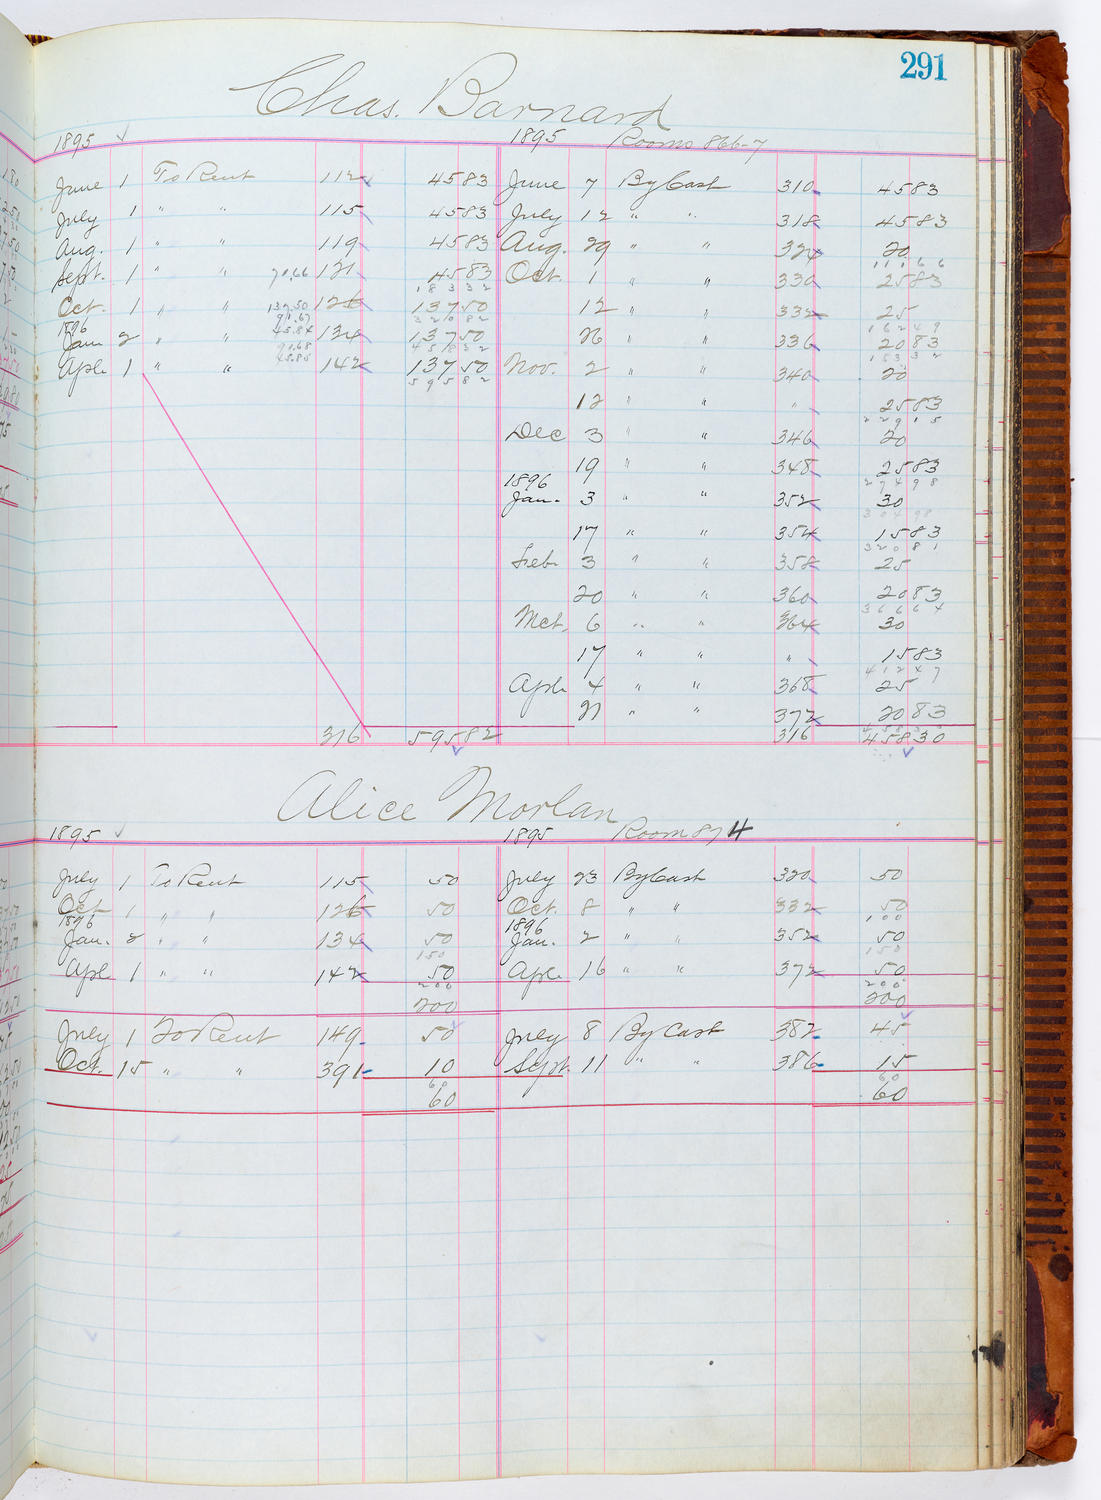 291
Chas. Barnard
1895 1895 Rooms 866-7
June 1 To Rent 112 4583 June 7 By Cash 310 4583
July 1 " 115 4583 July 12 " " 318 4583
Aug. 1 " " 119 4583 Aug. 29 " " 324 20
11166
Sept. 1 " " 70.66 121 4583 Oct. 1 " " 330 2583
18332
Oct. 1 " " 137.50 126 13750 12 " " 332 25
91.67 32082 16249
1896
Jan. 2 " " 45.84 134 13750 26 " " 336 2083
90.68 45832 18332
Apl. 1 " " 45.85 142 13750 Nov. 2 " " 340 20
59582
12 " " " 2583
22915
Dec 3 " " 346 20
19 " " 348 2583
27498
1896
Jan. 3 " " 352 30
30498
17 " " 354 1583
32081
Feb. 3 " " 358 25
20 " " 360 2083
36664
Mct. 6 " " 364 30
17 " " " 1583
41247
Apl. 4 " " 368 25
21 " " 372 2083
316 59582 316 45830
Alice Morlan
1895 1895 Room 874
July 1 To Rent 115 50 July 23 By Cash 320 50
Oct. 1 " " 126 50 Oct. 8 " " 332 50
100
1896 1896
Jan. 2 " " 134 50 Jan. 2 " " 352 50
150 150
Apl. 1 " " 142 50 Apl. 16 " " 372 50
200 200
200 200
July 1 To Rent 149 50 July 8 By Cash 382 45
Oct. 15 " " 391 10 Sept. 11 " " 386 15
60 60
60 60